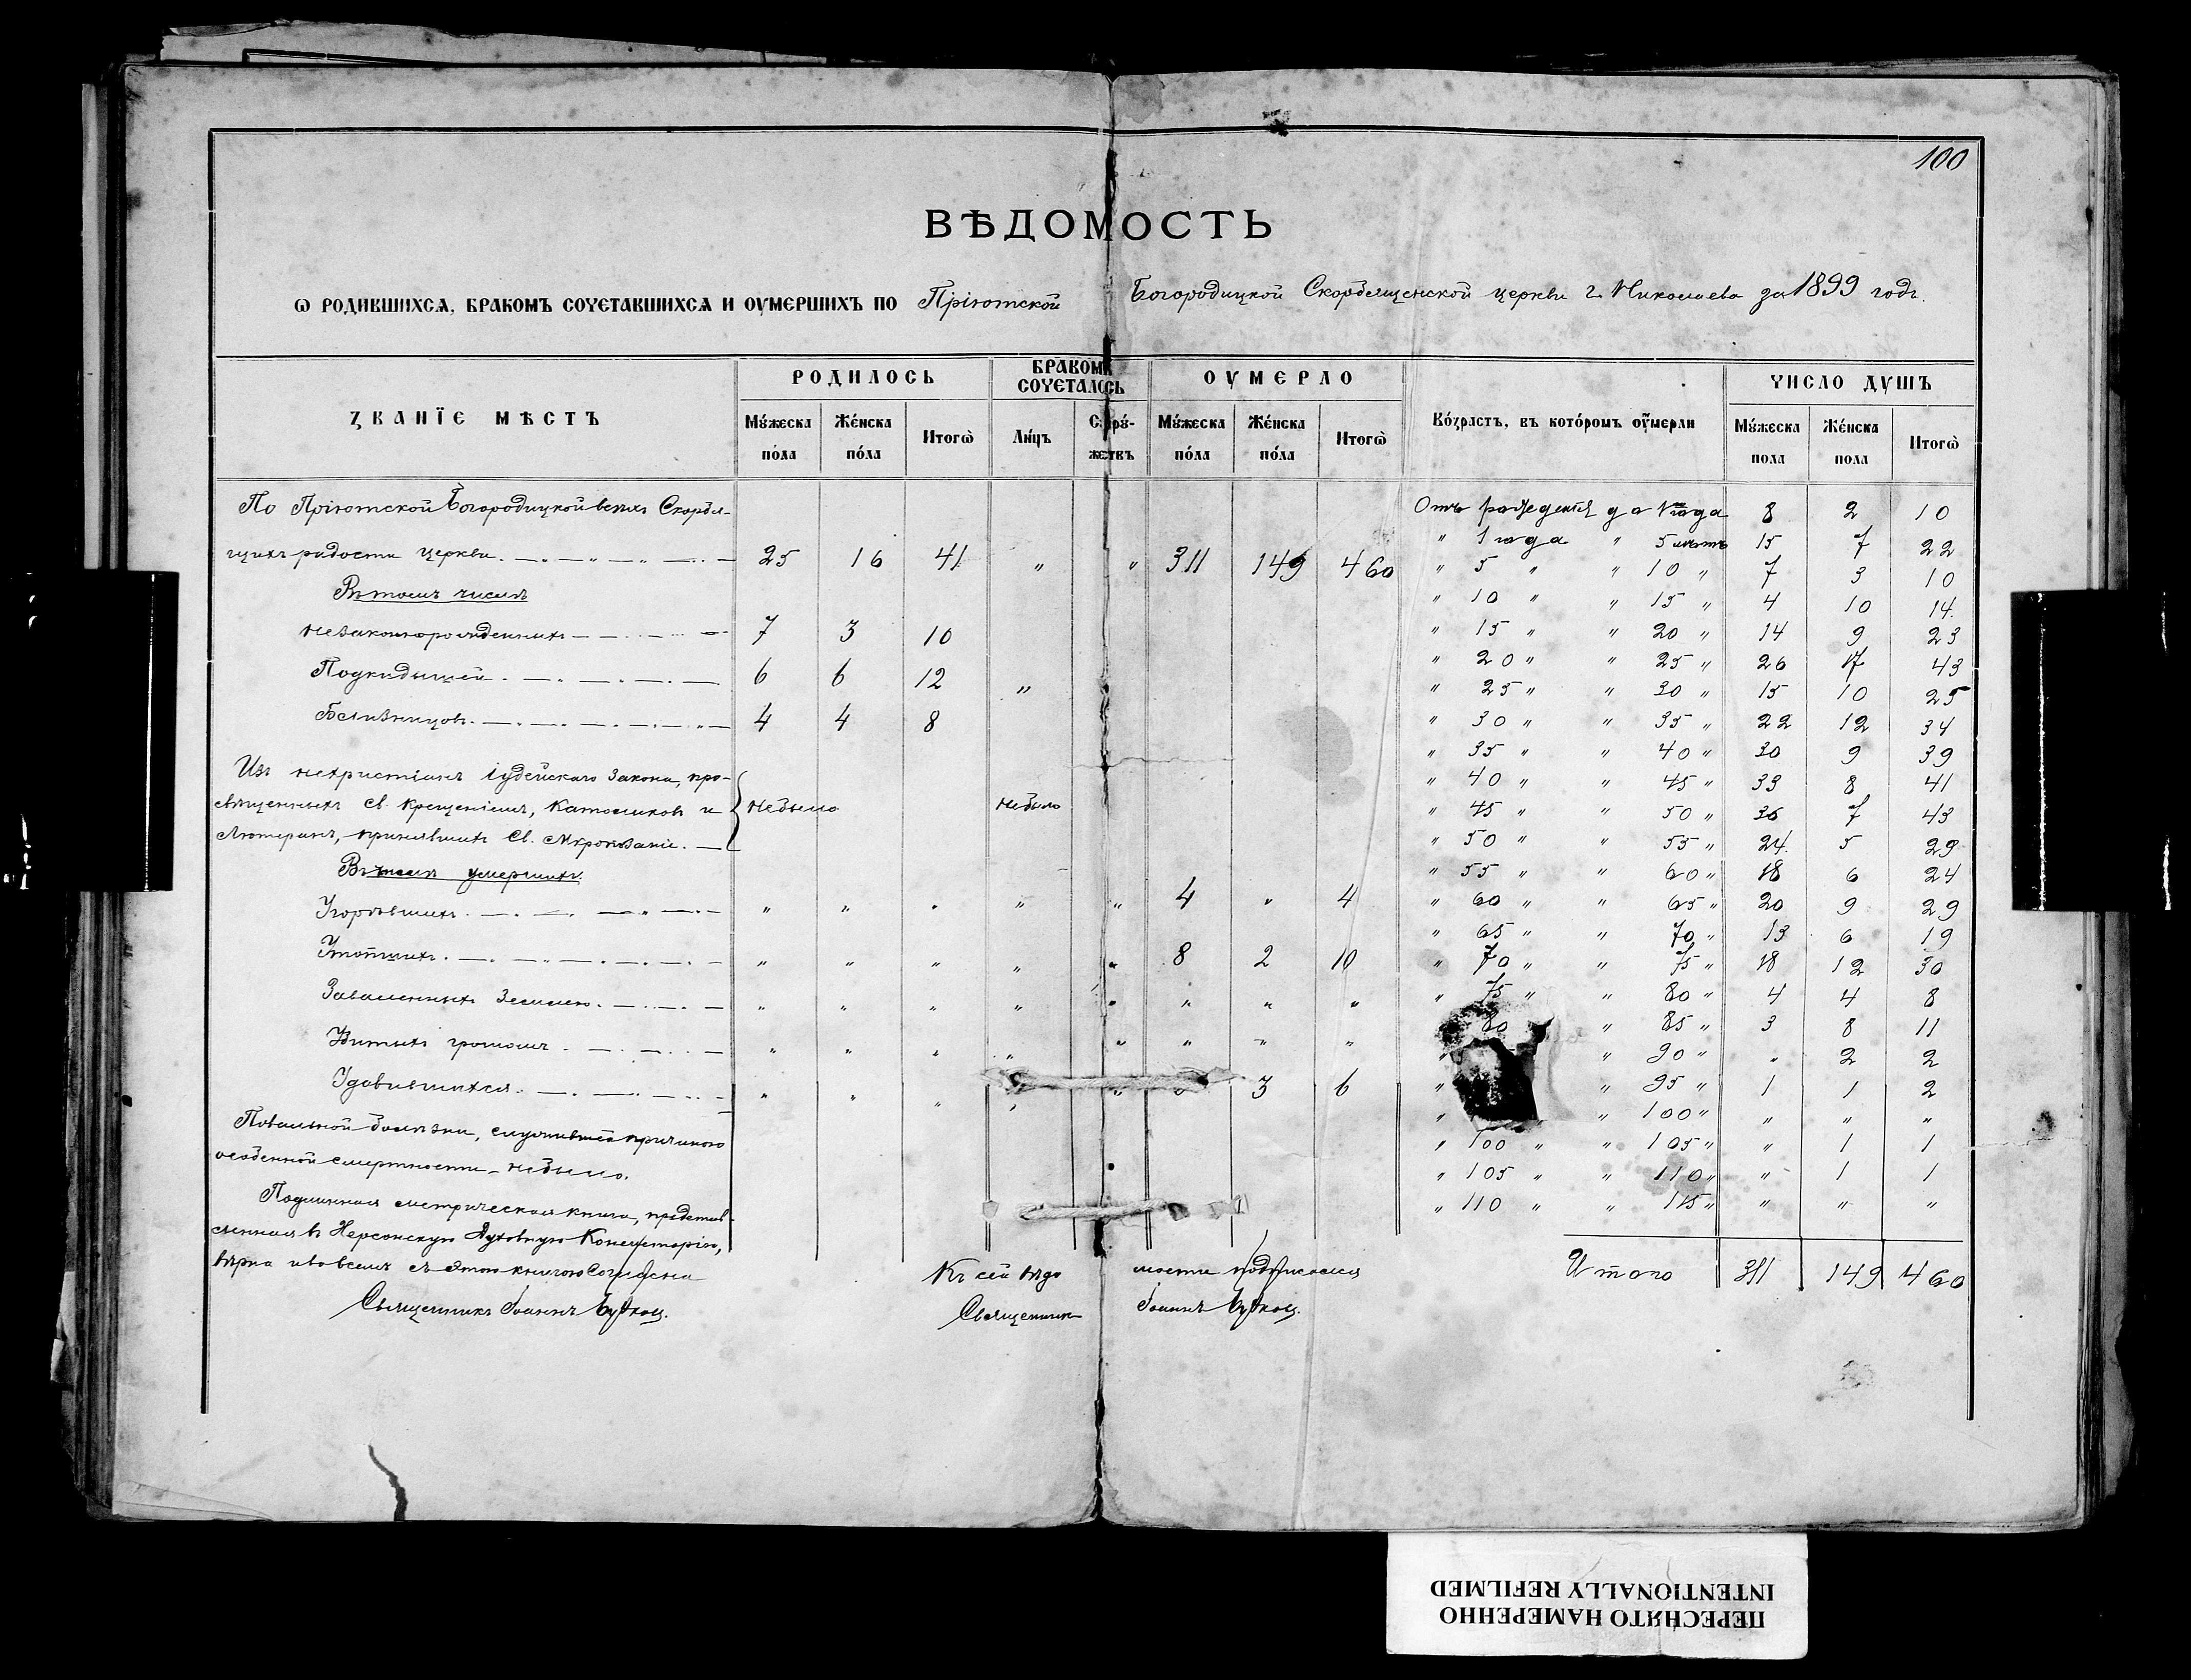 100
ВѢДОМОСТЬ
Ѡ РОДИВШИХСѦ, БРАКОМЪ СОЧЕТАВШИХСѦ И ОУМЕРШИХЪ ПО Пріютской Богородицкой Скорбященской церкви г. Николаева за 1899 годъ.
ЗВАНЇЕ МѢСТЪ
РОДИЛОСЬ
БРАКОМЪ СОЧЕТАЛОСЬ
ОУМЕРЛО
Во́зрастъ, въ кото́ромъ оу҆мерли
ЧИСЛО ДУШЪ
Мꙋ́жеска по́ла
Же́нска по́ла
Итогѡ
Ли́цъ
Сꙋпрꙋ́жествъ
Мꙋ́жеска по́ла
Же́нска по́ла
Итогѡ
Мꙋ́жеска пола
Же́нска пола
Итогѡ
По Пріютской Богородицкой всѣхъ Скорбя-
щихъ радости церкви. 25 16 41 " " 311 149 460
Въ томъ числѣ
незаконнорожденныхъ 7 3 10
Подкидышей 6 6 12 "
Близнецовъ 4 4 8
Изъ нехристіанъ іудейскаго закона, про-
свѣщенныхъ Св. Крещеніемъ, Католиковъ и небыло небыло
Лютеранъ, принявшихъ Св. Мѵропомазаніе.
Въ числѣ умершихъ:
Угорѣвшихъ " " " " " 4 " 4
Утопшихъ " " " " " 8 2 10
Заваленныхъ Землею " " " " " " " "
Убитыхъ громомъ " " " " " " " "
Удавившихся " " " " " 3 6
Повальной болѣзни, служившей причиною
особенной смертности – небыло.
Подлинная метрическая книга, представ-
ленная въ Херсонскую Духовную Консисторію,
вѣрна и во всемъ съ этою книгою Согласна
Священникъ Іоаннъ
Къ сей вѣдомости подписался
Священникъ Іоаннъ
Отъ рожденія до 1 года 8 2 10
" 1 года " 5 лѣтъ 15 7 22
" 5 " " 10 " 7 3 10
" 10 " " 15 " 4 10 14.
" 15 " " 20 " 14 9 23
" 20 " " 25 " 26 17 43
" 25 " " 30 " 15 10 25
" 30 " " 35 " 22 12 34
" 35 " " 40 " 30 9 39
" 40 " " 45 " 33 8 41
" 45 " " 50 " 36 7 43
" 50 " " 55 " 24. 5 29
" 55 " " 60 " 18 6 24
" 60 " " 65 " 20 9 29
" 65 " " 70 " 13 6 19
" 70 " " 75 " 18 12 30
" 75 " " 80 " 4 4 8
80 " 85 " 3 8 11
" " 90 " " 2 2
" " 95 " 1 1 2
" " 100 " " " "
" 100 " " 105 " " 1 1
" 105 " " 110 " " 1 1
" 110 " " 115 " " " "
Итого 311 149 460
ПЕРЕСНЯТО НАМЕРЕННО
INTENTIONALLY REFILMED